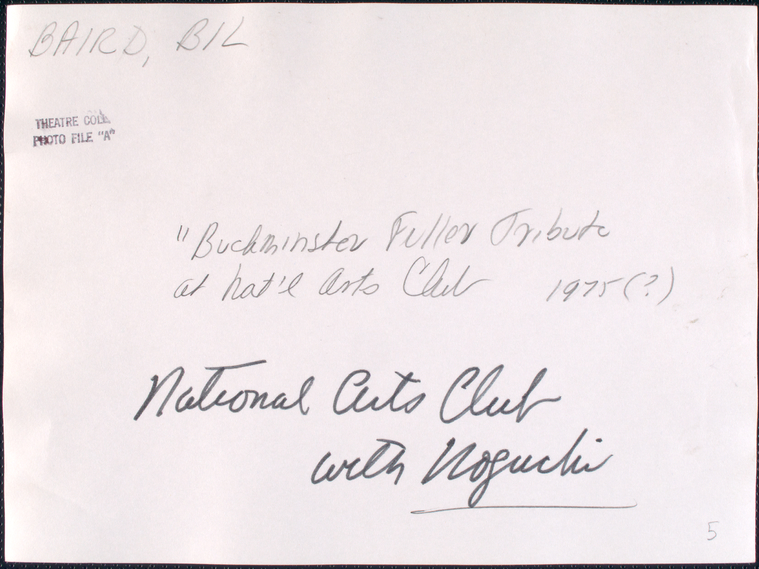 BAIRD, BIL
THEATRE COLL.
PHOTO FILE "A"
"Buckminster Fuller Tribute
at Nat'l Arts Club 1975(?)
National Arts Club
with Noguchi
5